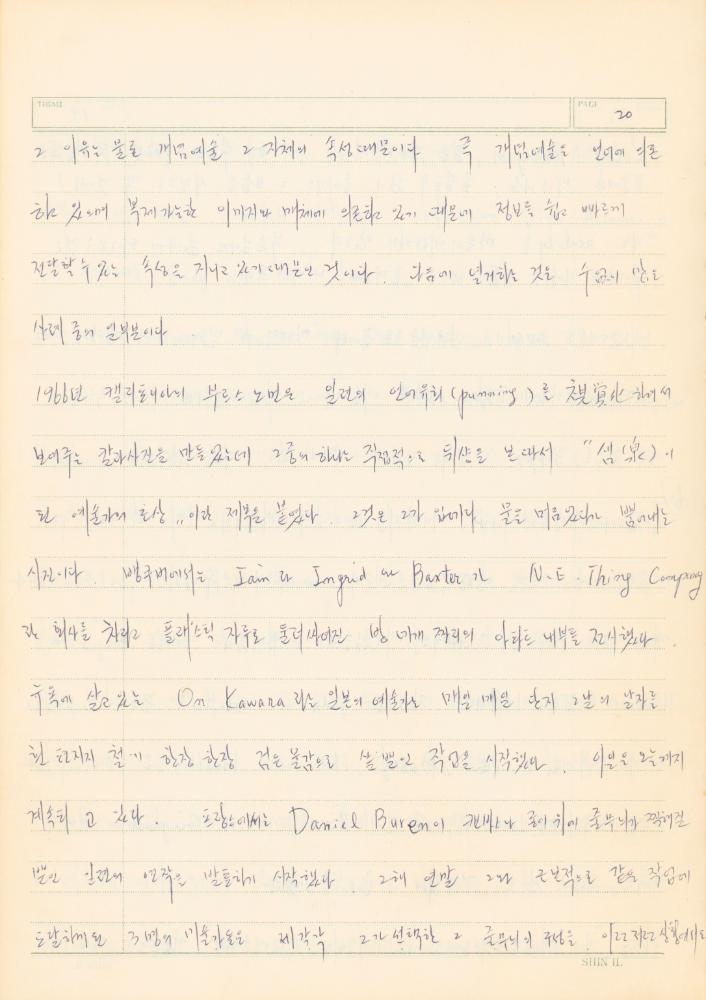 THEME
PAGE
20
그 이유는 물론 개념예술 그 자체의 속성 때문이다. 즉 개념예술은 언어에 의존
하고 있으며 복제가능한 이미지와 매체에 의존하고 있기 때문에 정보를 쉽고 빠르게
전달할 수 있는 속성을 지니고 있기 때문인 것이다. 다음에 열거하는 것은 수없이 많은
사례 중의 일부분이다
1966년 캘리포니아의 부르스 노만은 일련의 언어유희(punning)를 視覺化 하여서
보여주는 칼라사진을 만들었는데 그중의 하나는 직접적으로 뒤샹을 본따서 "샘(泉)이
된 예술가의 초상" 이란 제목을 붙였다. 그것은 그가 입에다 물을 머금었다가 뿜어내는
사진이다. 뱅쿠버에서는 Iain과 Ingrid Baxter가 N.E. Thing Company
란 회사를 차리고 플래스틱 자루로 둘러싸여진 방 네개 짜리의 아파트 내부를 전시했다.
뉴욕에 살고있는 On Kawara라는 일본의 예술가는 매일 매일 단지 그날의 날자를
흰 한장 한장 검은 물감으로 쓸 뿐인 작업을 시작했다. 이일은 오늘까지
계속되고 있다. 프랑스에서는 Daniel Buren이 캔바스나 종이위에 줄무늬가 찍혀진
뿐인 일련의 연작을 발표하기 시작했다. 그해 연말 그와 근본적으로 같은 작업에
도달하게된 3명의 미술가들은 제각각 그가 선택한 그 줄무늬의 구성을 이르저르 상황에서도
SHIN IL